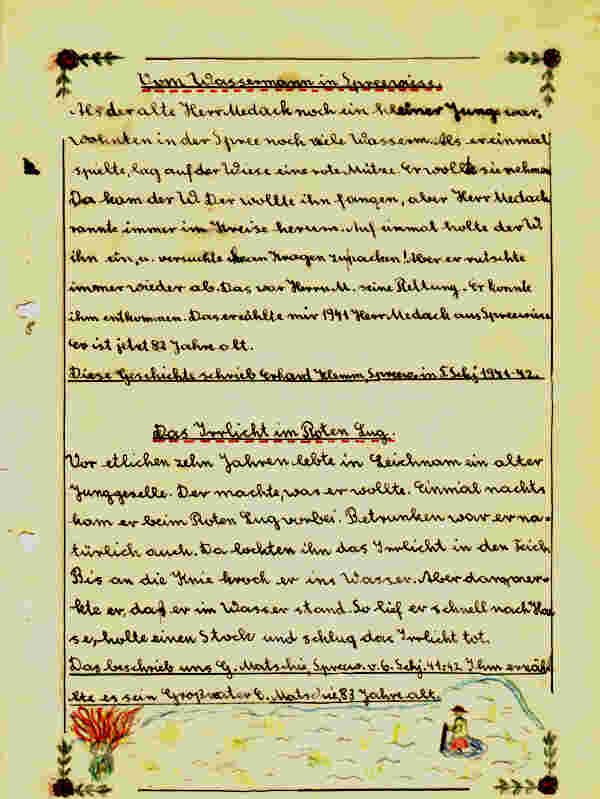 Vom Wassermann in Spreewiese.
Als der alte Herr Medack noch ein kleiner Jung war,
wohnten in der Spree noch viele Wasserm. Als er einmal
spielte, lag auf der Wiese eine rote Mütze. Er wollte sie nehmen
Da kam der W. Der wollte ihn fangen, aber Herr Medack
rannte immer im Kreise herum. Auf einmal holte der W
ihn ein, u. versuchte ihn an Kragen zupacken! Aber er rutschte
immer wieder ab. Das war Herrn M. seine Rettung. Er konnte
ihm entkommen. Das erzählte mir 1941 Herr Medack aus Spreewiese
Er ist jetzt 82 Jahre alt.
Diese Geschichte schrieb Erhard Klemm, Spreew. in 5. Schj 1941-42.
Das Irrlicht im Roten Lug.
Vor etlichen zehn Jahren lebte in Leichnam ein alter
Junggeselle. Der machte, was er wollte. Einmal nachts
kam er beim Roten Lug vorbei. Betrunken war er na-
türlich auch. Da lockten ihn das Irrlicht in den Teich
Bis an die Knie kroch er ins Wasser. Aber dann mer-
kte er, daß er im Wasser stand. So lief er schnell nach Hau
se, holte einen Stock und schlug das Irrlicht tot.
Das beschrieb uns G. Matschie, Spreew. v. 6. Schj. 41:42. Ihm erzäh
lte es sein Großvater E. Matschie, 83 Jahre alt.